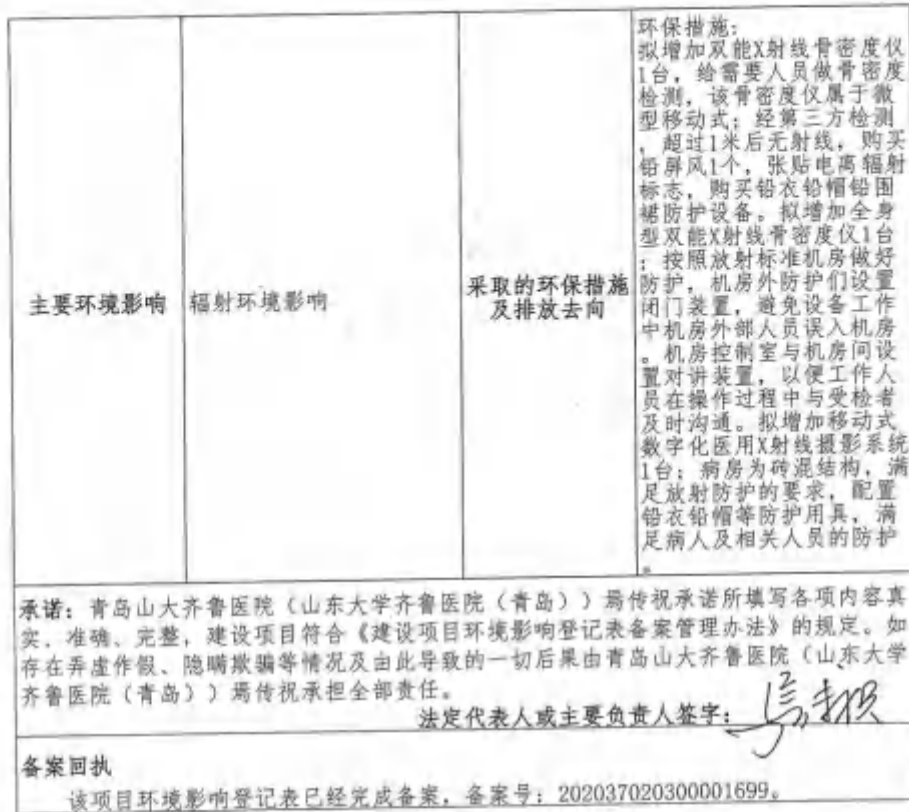 环保措施:
拟增加双能X射线骨密度仪
1台，给需要人员做骨密度
检测，该骨密度仪属于微
型移动式；经第三方检测
，超过1米后无射线，购买
铅屏风1个，张贴电离辐射
标志，购买铅衣铅帽铅围
裙防护设备。拟增加全身
型双能X射线骨密度仪1台
；按照放射标准机房做好
防护，机房外防护们设置
闭门装置，避免设备工作
中机房外部人员误入机房
。机房控制室与机房间设
置对讲装置，以便工作人
员在操作过程中与受检者
及时沟通。拟增加移动式
数字化医用X射线摄影系统
1台；病房为砖混结构，满
足放射防护的要求，配置
铅衣铅帽等防护用具，满
足病人及相关人员的防护
。
主要环境影响
辐射环境影响
采取的环保措施
及排放去向
承诺：青岛山大齐鲁医院（山东大学齐鲁医院（青岛））焉传祝承诺所填写各项内容真
实、准确、完整，建设项目符合《建设项目环境影响登记表备案管理办法》的规定。如
存在弄虚作假、隐瞒欺骗等情况及由此导致的一切后果由青岛山大齐鲁医院（山东大学
齐鲁医院（青岛））焉传祝承担全部责任。
法定代表人或主要负责人签字：焉传祝
备案回执
该项目环境影响登记表已经完成备案，备案号：202037020300001699。